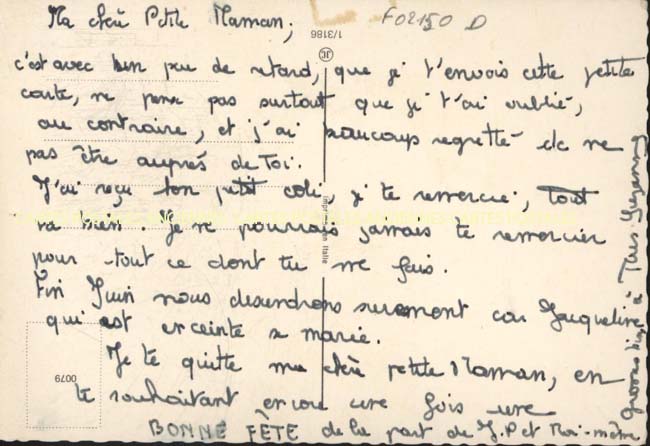 F02150 D
Ma chèr Petite Maman,
c'est avec bien peu de retard, que je t'envois cette petite
carte, ne pense pas surtout que je t'ai oublié,
au contraire, et j'ai beaucoup regretté de ne
pas être auprés de Toi.
J'ai reçu ton petit coli, je te remercie, tout
va bien. Je ne pourrais jamais te remercier
pour tout ce dont tu me fais.
Fin Juin nous descendrons surement car Jacqueline
qui est enceinte se marie.
Je te quitte ma chèr petite Maman, en
te souhaitant encore une fois une
BONNE FÊTE de la part de J.P et Moi-même
Grosses bises à Tous Suzanne
1/3186
JC
Imprimé en Italie
0079